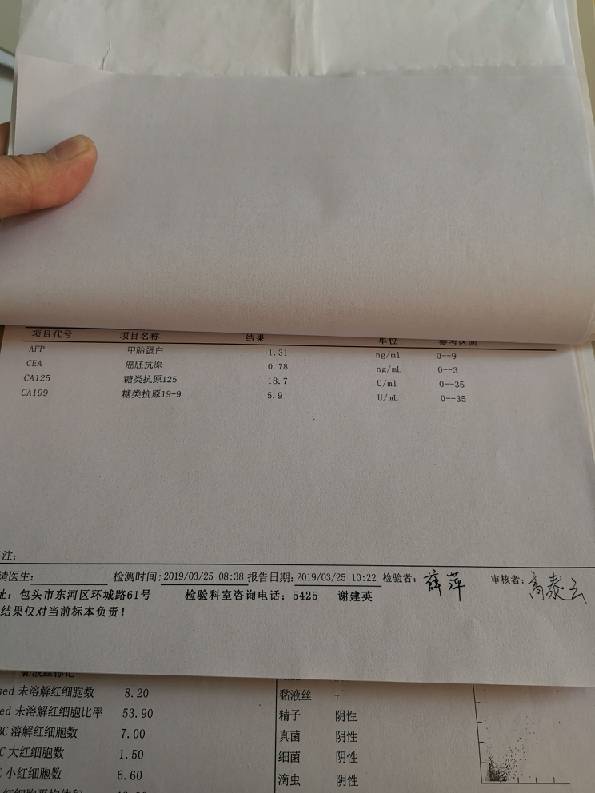 项目代号 项目名称 结果 单位 参考区间
AFP 甲胎蛋白 1.31 ng/ml 0--9
CEA 癌胚抗原 0.78 ng/mL 0--3
CA125 糖类抗原125 13.7 U/mL 0--35
CA199 糖类抗原19-9 5.9 U/mL 0--35
注:
医生: 检测时间: 2019/03/25 08:38 报告日期: 2019/03/25 10:22 检验者: 薛萍 审核者: 高泰云
址: 包头市东河区环城路61号 检验科室咨询电话: 5425 谢建英
结果仅对当前标本负责!
sed 未溶解红细胞数 3.20 黏液丝 -
ed 未溶解红细胞比率 53.90 精子 阴性
BC 溶解红细胞数 7.00 真菌 阴性
C 大红细胞数 1.50 细菌 阴性
C 小红细胞数 5.60 滴虫 阴性